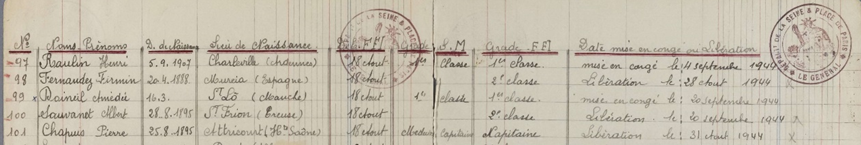 N° Noms Prénoms D. de Naissance Lieu de Naissance F.F.I Grade S.M Grade F.F.I Date mise en congé ou Libération
97 Raulin Henri 5.9.1907 Charleville (Ardennes) 18 Aout Classe 1ère classe mise en congé le: 4 septembre 1944
98 Fernandez Fermin 20.4.1888. Murcia (Espagne) 18 Aout 2e classe Libération le: 28 Aout 1944
99 x Amédée 16.3. St Lô (Manche) 18 Aout 1ère classe 1ère classe mise en congé le: 20 septembre 1944
100 Sauvanet Albert 28.8.1895 St Frion (Creuse) 18 Aout 2e classe Libération le: 20 septembre 1944 x
101 Chapuis Pierre 25.8.1895 Attricourt (Hte Saône) 18 Aout Médecin Capitaine Capitaine Libération le: 31 Aout 1944 x
DE LA SEINE & PLACE DE PARIS
LE GENERAL